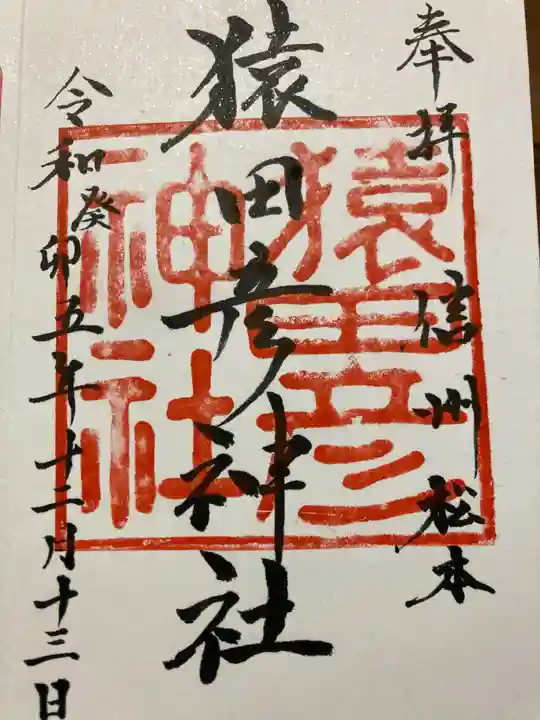 奉拝 信州 松本
猿田彦神社
猿田彦
神社
令和癸卯五年十二月十三日